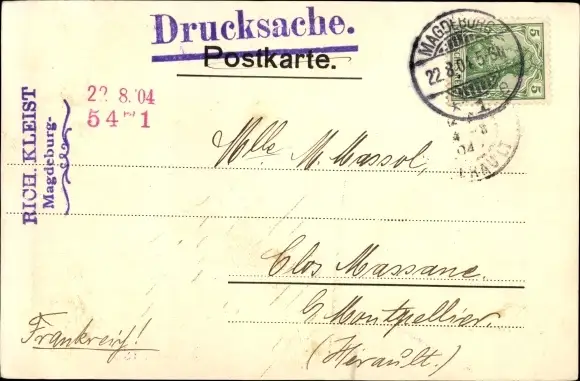 Drucksache.
Postkarte.
MAGDEBURG
22.8.04.5-6N
* 1
5
5
5
HÉRAULT
22. 8. '04
54 1
RICH. KLEIST
Magdeburg-
Mlle M. Massol,
Clos Massane.
Montpellier.
(Hérault.)
Frankreich!